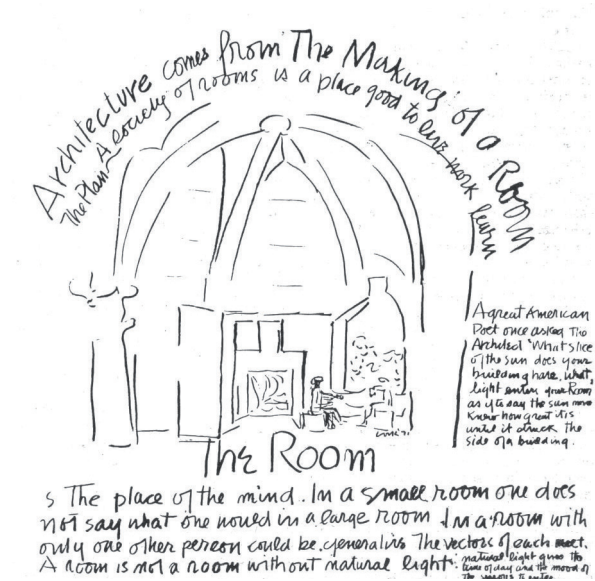 Architecture comes from The Making of a Room
The Plan A society of rooms is a place good to live work learn
A great American
Poet once asked The
Architect 'What slice
of the sun does your
building have. What
light enters your Room
as if to say the sun never
knew how great it is
until it struck the
side of a building.
The Room
s The place of the mind. In a small room one does
not say what one would in a large room In a room with
only one other person could be generative The vectors of each meet.
A room is not a room without natural light
natural light gives the
time of day and the mood of
the seasons to enter